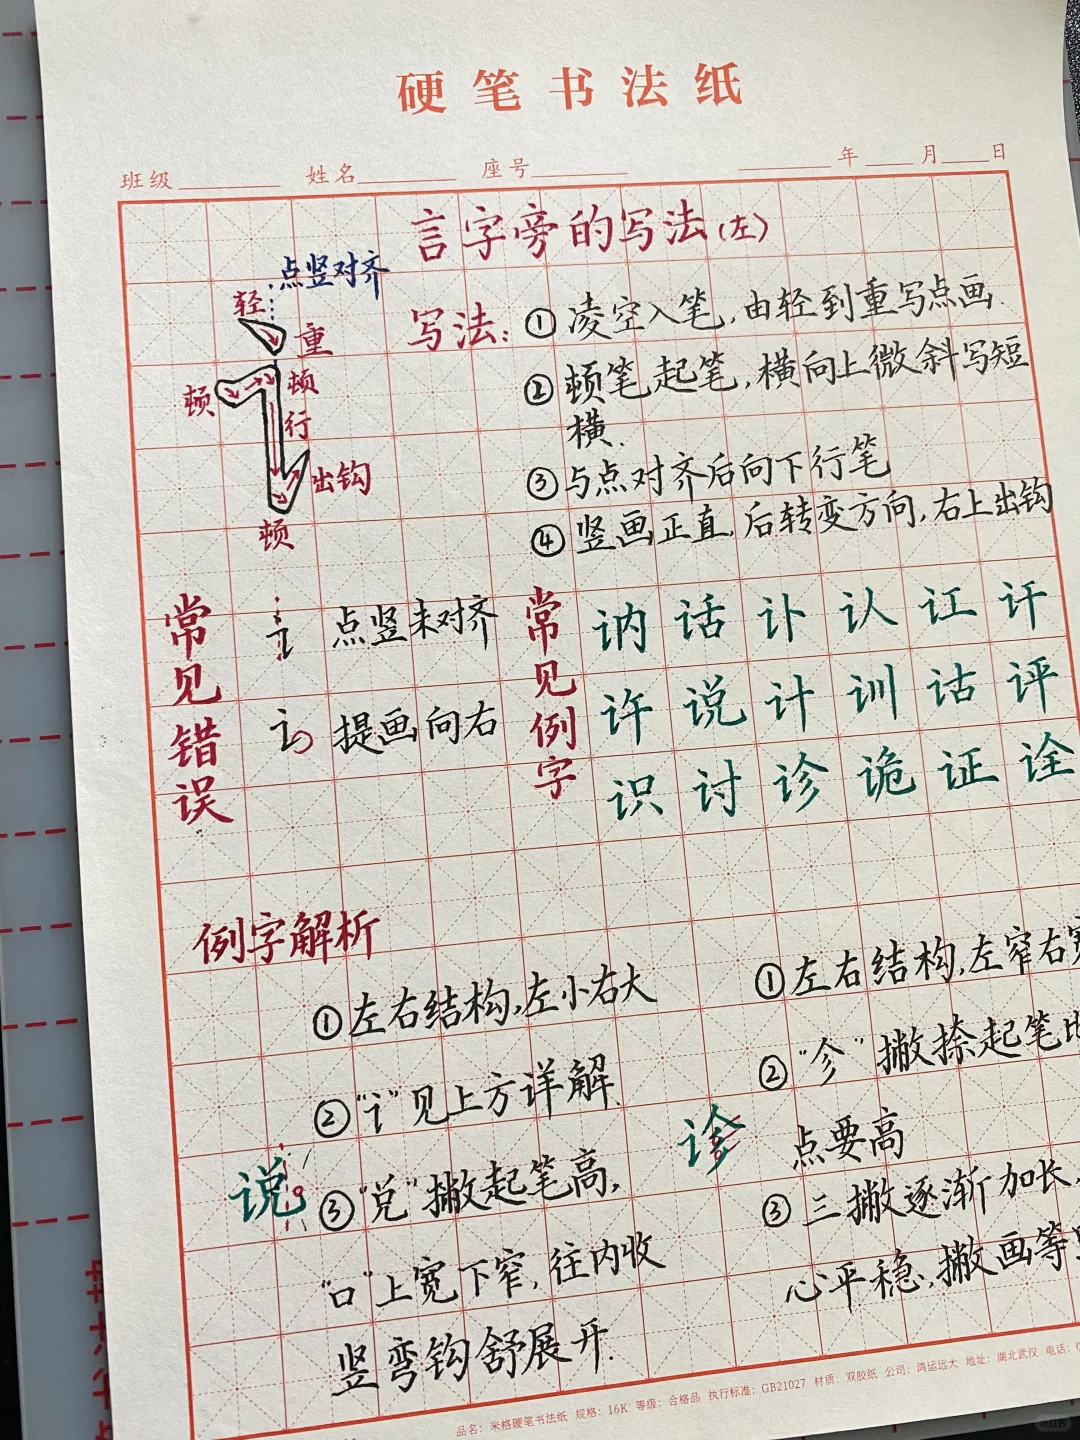 硬笔书法纸
班级 姓名 座号 年 月 日
言字旁的写法(左)
点竖对齐
轻
重
顿
顿
行
出钩
顿
写法:①凌空入笔,由轻到重写点画.
②顿笔起笔,横向上微斜写短
横.
③与点对齐后向下行笔
④竖画正直,后转变方向,右上出钩
常见错误
讠 点竖未对齐
讠 提画向右
常见例字
讷 话 讣 认 讧 讦
许 说 计 训 诂 评
识 讨 诊 诡 证 诠
例字解析
说
①左右结构,左小右大
②"讠"见上方详解.
③"兑"撇起笔高,
"口"上宽下窄,往内收
竖弯钩舒展开.
诊
①左右结构,左窄右宽
②"㐱"撇捺起笔比
点要高
③三撇逐渐加长,
心平稳,撇画等
品名:米格硬笔书法纸 规格:16K 等级:合格品 执行标准:GB21027 材质:双胶纸 公司:鸿运远大 地址:湖北武汉 电话: